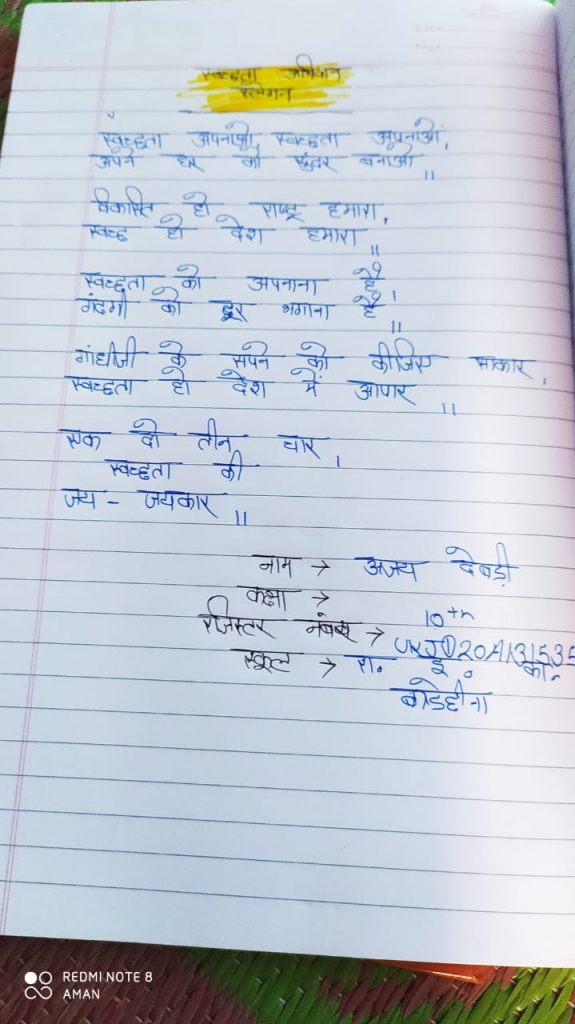 स्वच्छता अभियान
स्लोगन
स्वच्छता अपनाओ, स्वच्छता अपनाओ,
अपने घर को सुंदर बनाओ ॥
विकसित हो राष्ट्र हमारा,
स्वच्छ हो देश हमारा ॥
स्वच्छता को अपनाना है।
गंदगी को दूर भगाना है ॥
गांधीजी के सपने को कीजिए साकार,
स्वच्छता हो देश में आपार ॥
एक दो तीन चार,
स्वच्छता की
जय - जयकार ॥
नाम → अजय देवड़ी
कक्षा → 10th
रजिस्टर नंबर → UKJD20A131535
स्कूल → रा. इ. कॉ.
REDMI NOTE 8
AMAN